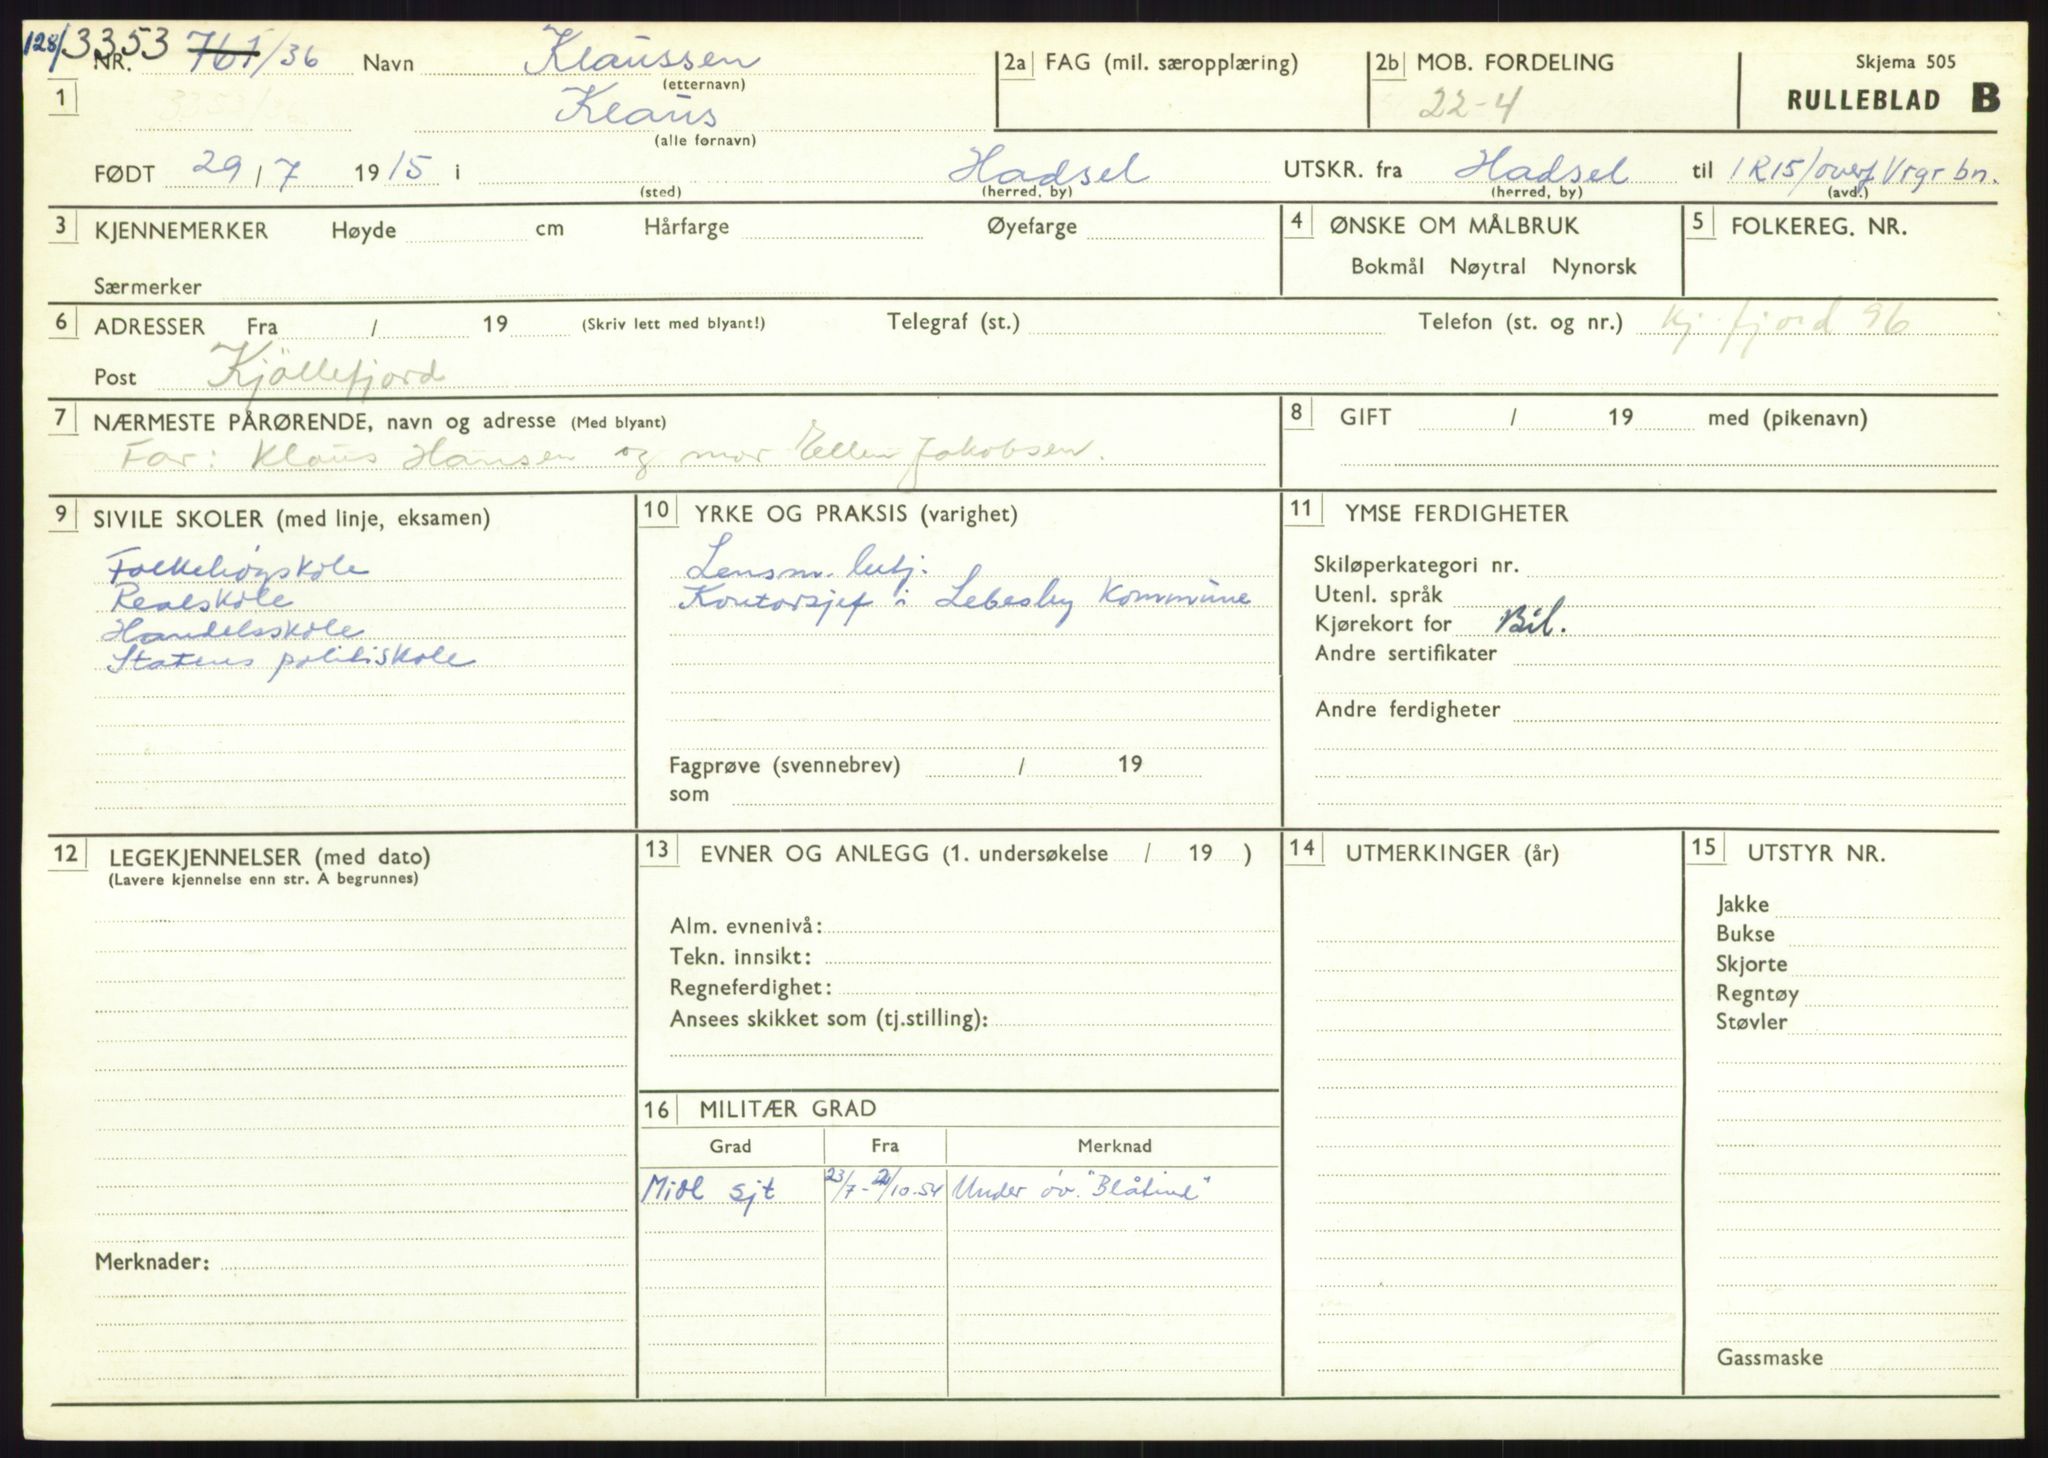 128/3353
NR. 761/36 Navn Klaussen
(etternavn)
2a FAG (mil. særopplæring)
2b MOB. FORDELING
22-4
Skjema 505
RULLEBLAD B
1
3353/36
Klaus
(alle fornavn)
FØDT 29/7 1915 i Hadsel UTSKR. fra Hadsel til IR15/overf Vrgr bn.
(sted) (herred, by) (herred, by) (avd.)
3 KJENNEMERKER Høyde cm Hårfarge Øyefarge
Særmerker
4 ØNSKE OM MÅLBRUK
Bokmål Nøytral Nynorsk
5 FOLKEREG. NR.
6 ADRESSER Fra / 19 (Skriv lett med blyant!) Telegraf (st.) Telefon (st. og nr.) Kj.fjord 96
Post Kjöllefjord
7 NÆRMESTE PÅRØRENDE, navn og adresse (Med blyant)
Far: Klaus Hansen og mor Ellen Jakobsen.
8 GIFT / 19 med (pikenavn)
9 SIVILE SKOLER (med linje, eksamen)
Folkehøgskole
Realskole
Handelsskole
Statens politiskole
10 YRKE OG PRAKSIS (varighet)
Lensm. betj.
Kontorsjef i Lebesby Kommune
Fagprøve (svennebrev) / 19
som
11 YMSE FERDIGHETER
Skiløperkategori nr.
Utenl. språk
Kjørekort for Bil.
Andre sertifikater
Andre ferdigheter
12 LEGEKJENNELSER (med dato)
(Lavere kjennelse enn str. A begrunnes)
Merknader:
13 EVNER OG ANLEGG (1. undersøkelse / 19 )
Alm. evnenivå:
Tekn. innsikt:
Regneferdighet:
Ansees skikket som (tj.stilling):
14 UTMERKINGER (år)
15 UTSTYR NR.
Jakke
Bukse
Skjorte
Regntøy
Støvler
Gassmaske
16 MILITÆR GRAD
Grad Fra Merknad
Midl sjt 23/7- /10-54 Under öv. "Blåtind"